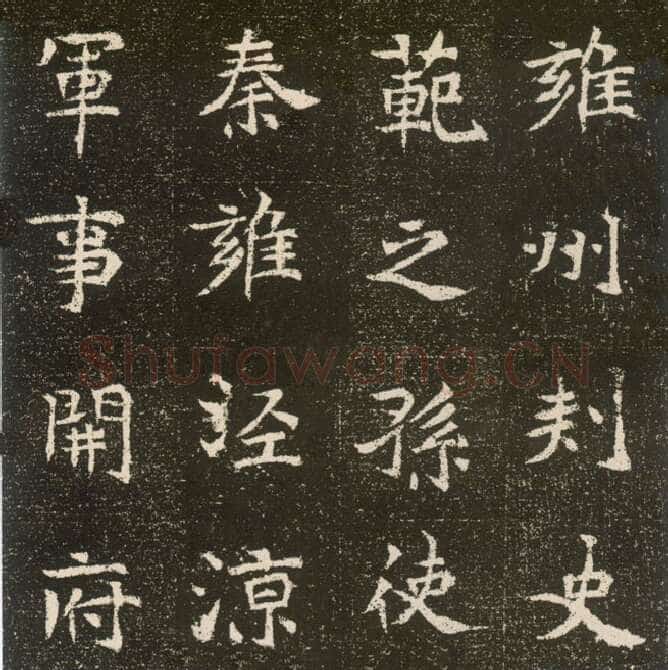 雍州刺史
範之孫使
秦雍涇涼
軍事開府
Shufawang.CN